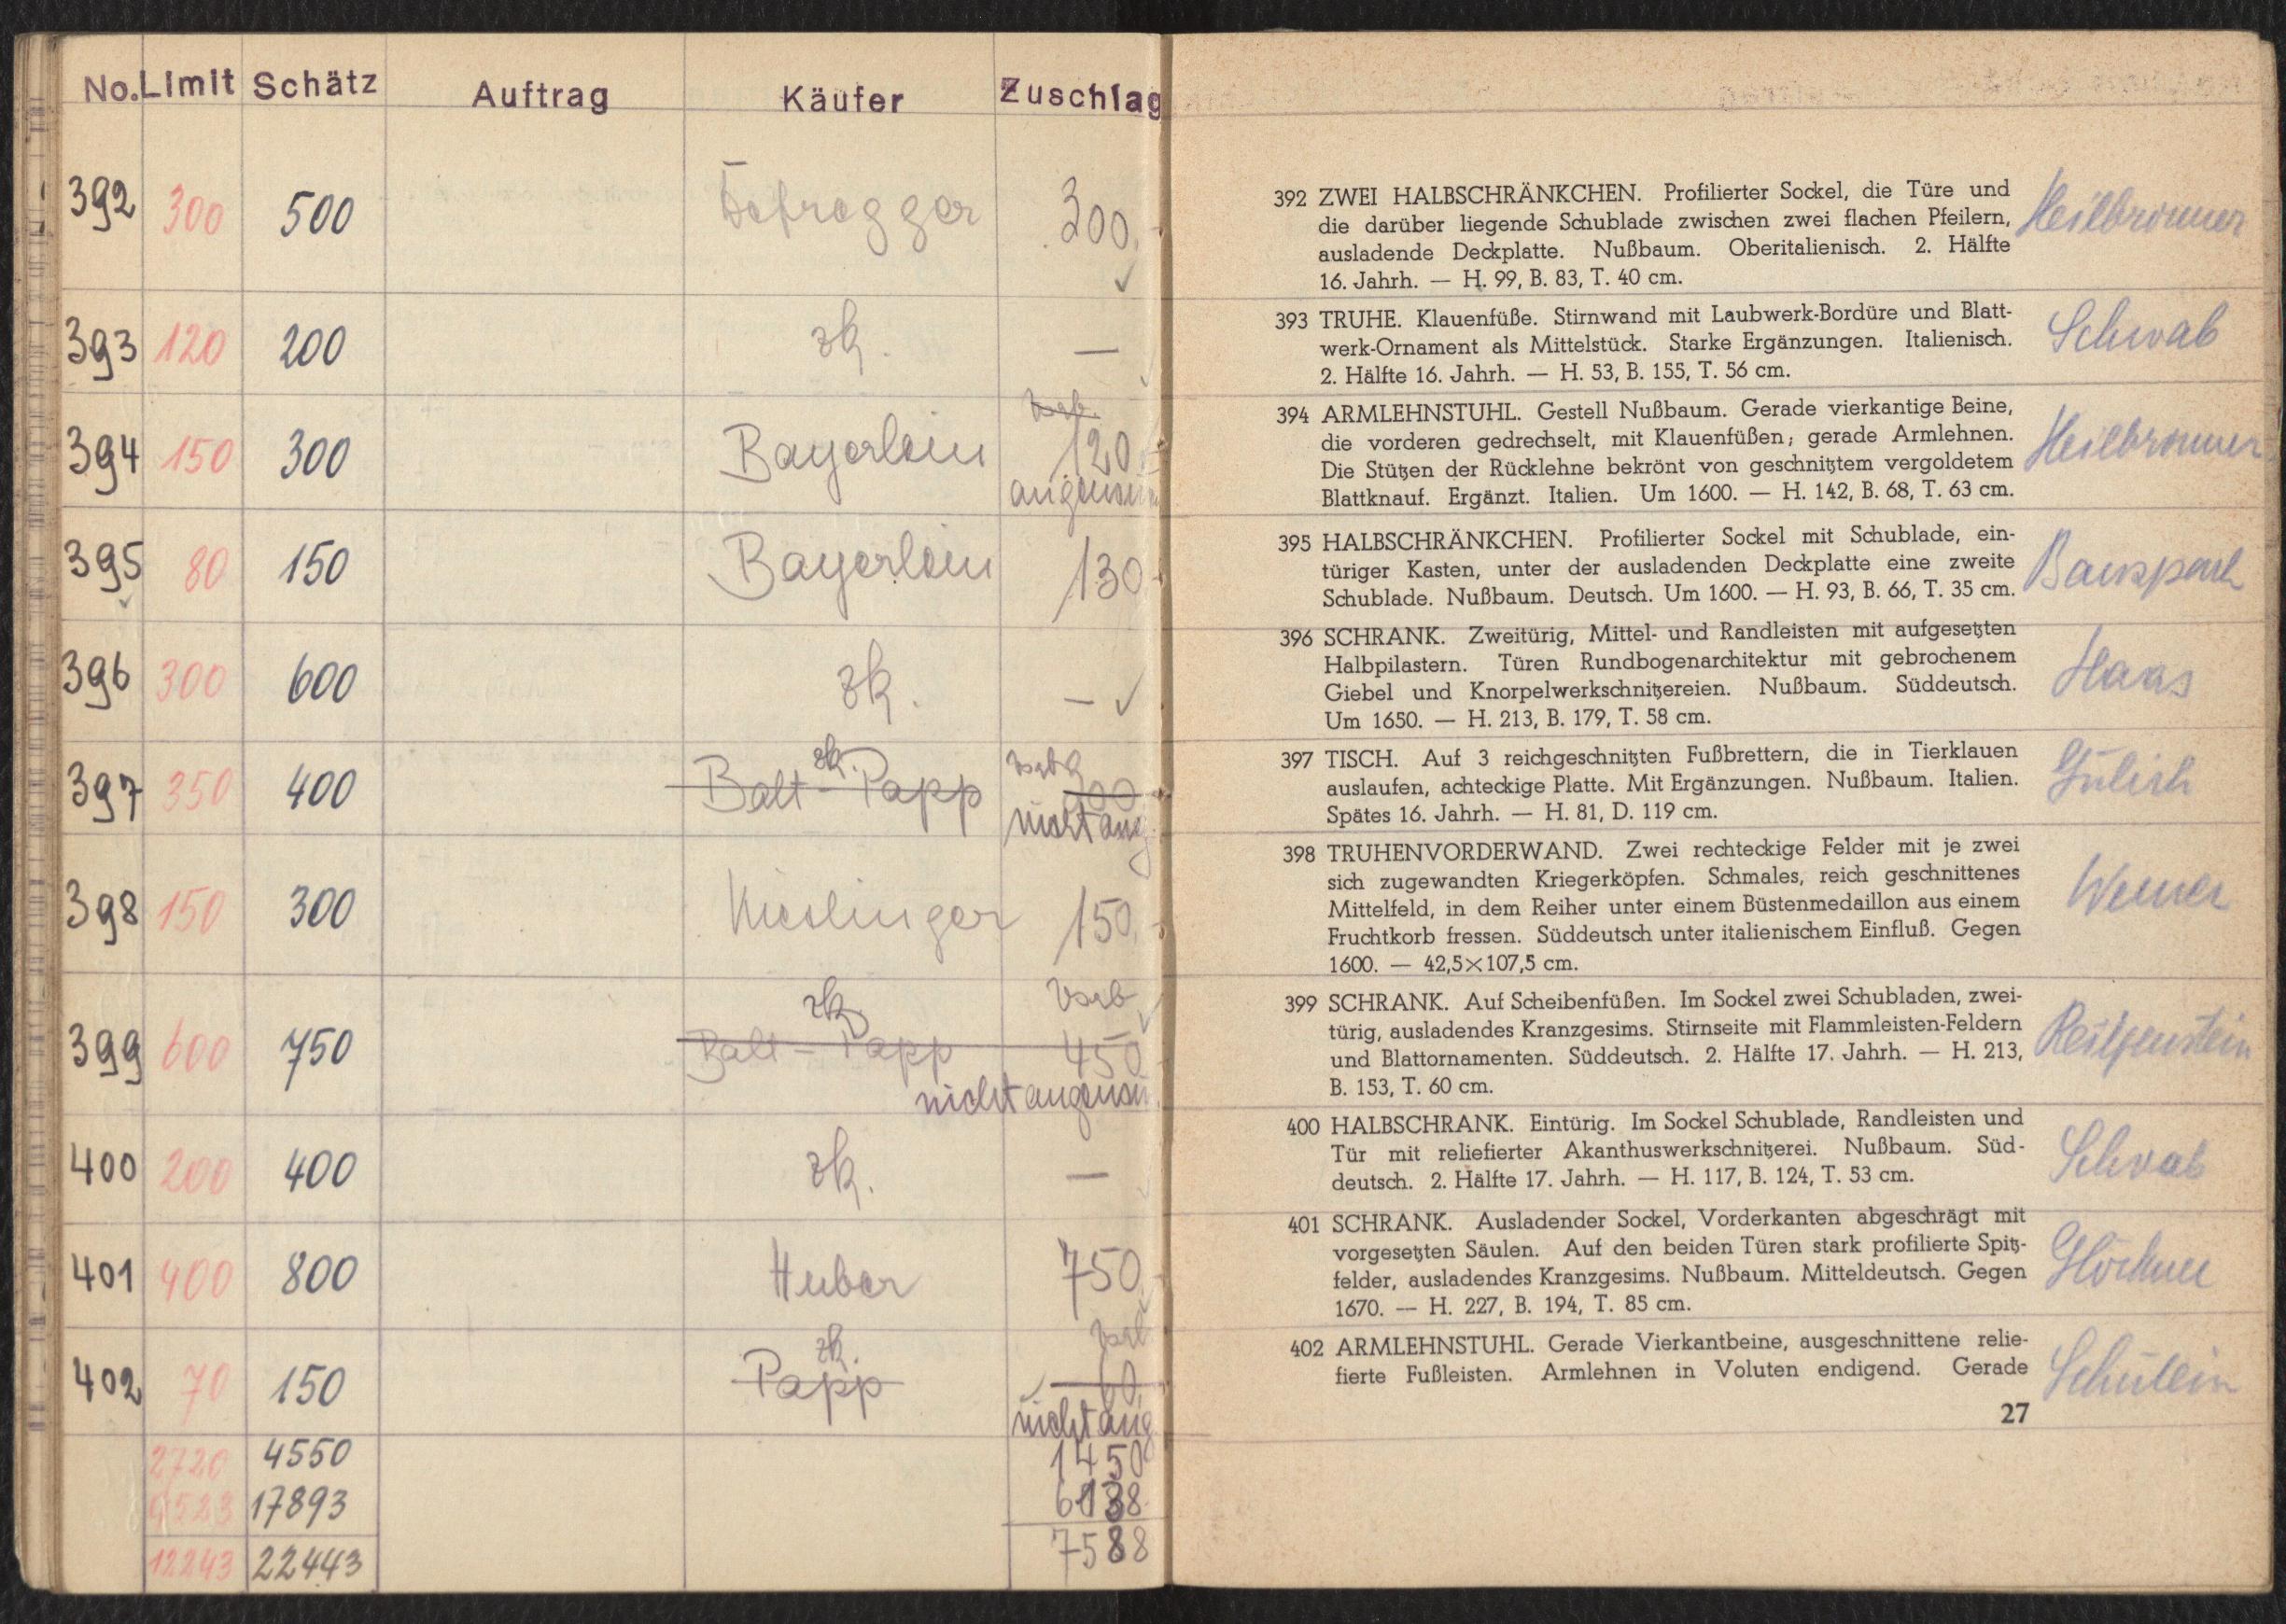 No. Limit Schätz Auftrag Käufer Zuschlag
392 300 500 Defregger 300.-
393 120 200 zk. —
vorb.
394 150 300 Bayerlein 120.-
angenom
395 80 150 Bayerlein 130.-
396 300 600 zk. —
zk. vorb
397 350 400 Balt-Papp
nicht ang
398 150 300 Kieslinger 150.-
zk. Vorb
399 600 750 Balt-Papp 450
nicht angenom
400 200 400 zk. —
401 400 800 Huber 750.-
zk. vorb
402 70 150 Papp 60.
nicht ang
2720 4550 1450
17893
12243 22443 7588
392 ZWEI HALBSCHRÄNKCHEN. Profilierter Sockel, die Türe und
die darüber liegende Schublade zwischen zwei flachen Pfeilern,
ausladende Deckplatte. Nußbaum. Oberitalienisch. 2. Hälfte
16. Jahrh. — H. 99, B. 83, T. 40 cm.
Heilbronner
393 TRUHE. Klauenfüße. Stirnwand mit Laubwerk-Bordüre und Blatt-
werk-Ornament als Mittelstück. Starke Ergänzungen. Italienisch.
2. Hälfte 16. Jahrh. — H. 53, B. 155, T. 56 cm.
Schwab
394 ARMLEHNSTUHL. Gestell Nußbaum. Gerade vierkantige Beine,
die vorderen gedrechselt, mit Klauenfüßen; gerade Armlehnen.
Die Stützen der Rücklehne bekrönt von geschnitztem vergoldetem
Blattknauf. Ergänzt. Italien. Um 1600. — H. 142, B. 68, T. 63 cm.
Heilbronner
395 HALBSCHRÄNKCHEN. Profilierter Sockel mit Schublade, ein-
türiger Kasten, unter der ausladenden Deckplatte eine zweite
Schublade. Nußbaum. Deutsch. Um 1600. — H. 93, B. 66, T. 35 cm.
396 SCHRANK. Zweitürig, Mittel- und Randleisten mit aufgesetzten
Halbpilastern. Türen Rundbogenarchitektur mit gebrochenem
Giebel und Knorpelwerkschnitzereien. Nußbaum. Süddeutsch.
Um 1650. — H. 213, B. 179, T. 58 cm.
Haas
397 TISCH. Auf 3 reichgeschnitzten Fußbrettern, die in Tierklauen
auslaufen, achteckige Platte. Mit Ergänzungen. Nußbaum. Italien.
Spätes 16. Jahrh. — H. 81, D. 119 cm.
Gülich
398 TRUHENVORDERWAND. Zwei rechteckige Felder mit je zwei
sich zugewandten Kriegerköpfen. Schmales, reich geschnittenes
Mittelfeld, in dem Reiher unter einem Büstenmedaillon aus einem
Fruchtkorb fressen. Süddeutsch unter italienischem Einfluß. Gegen
1600. — 42,5×107,5 cm.
399 SCHRANK. Auf Scheibenfüßen. Im Sockel zwei Schubladen, zwei-
türig, ausladendes Kranzgesims. Stirnseite mit Flammleisten-Feldern
und Blattornamenten. Süddeutsch. 2. Hälfte 17. Jahrh. — H. 213,
B. 153, T. 60 cm.
400 HALBSCHRANK. Eintürig. Im Sockel Schublade, Randleisten und
Tür mit reliefierter Akanthuswerkschnitzerei. Nußbaum. Süd-
deutsch. 2. Hälfte 17. Jahrh. — H. 117, B. 124, T. 53 cm.
Schwab
401 SCHRANK. Ausladender Sockel, Vorderkanten abgeschrägt mit
vorgesetzten Säulen. Auf den beiden Türen stark profilierte Spitz-
felder, ausladendes Kranzgesims. Nußbaum. Mitteldeutsch. Gegen
1670. — H. 227, B. 194, T. 85 cm.
402 ARMLEHNSTUHL. Gerade Vierkantbeine, ausgeschnittene relie-
fierte Fußleisten. Armlehnen in Voluten endigend. Gerade
Schülein
27